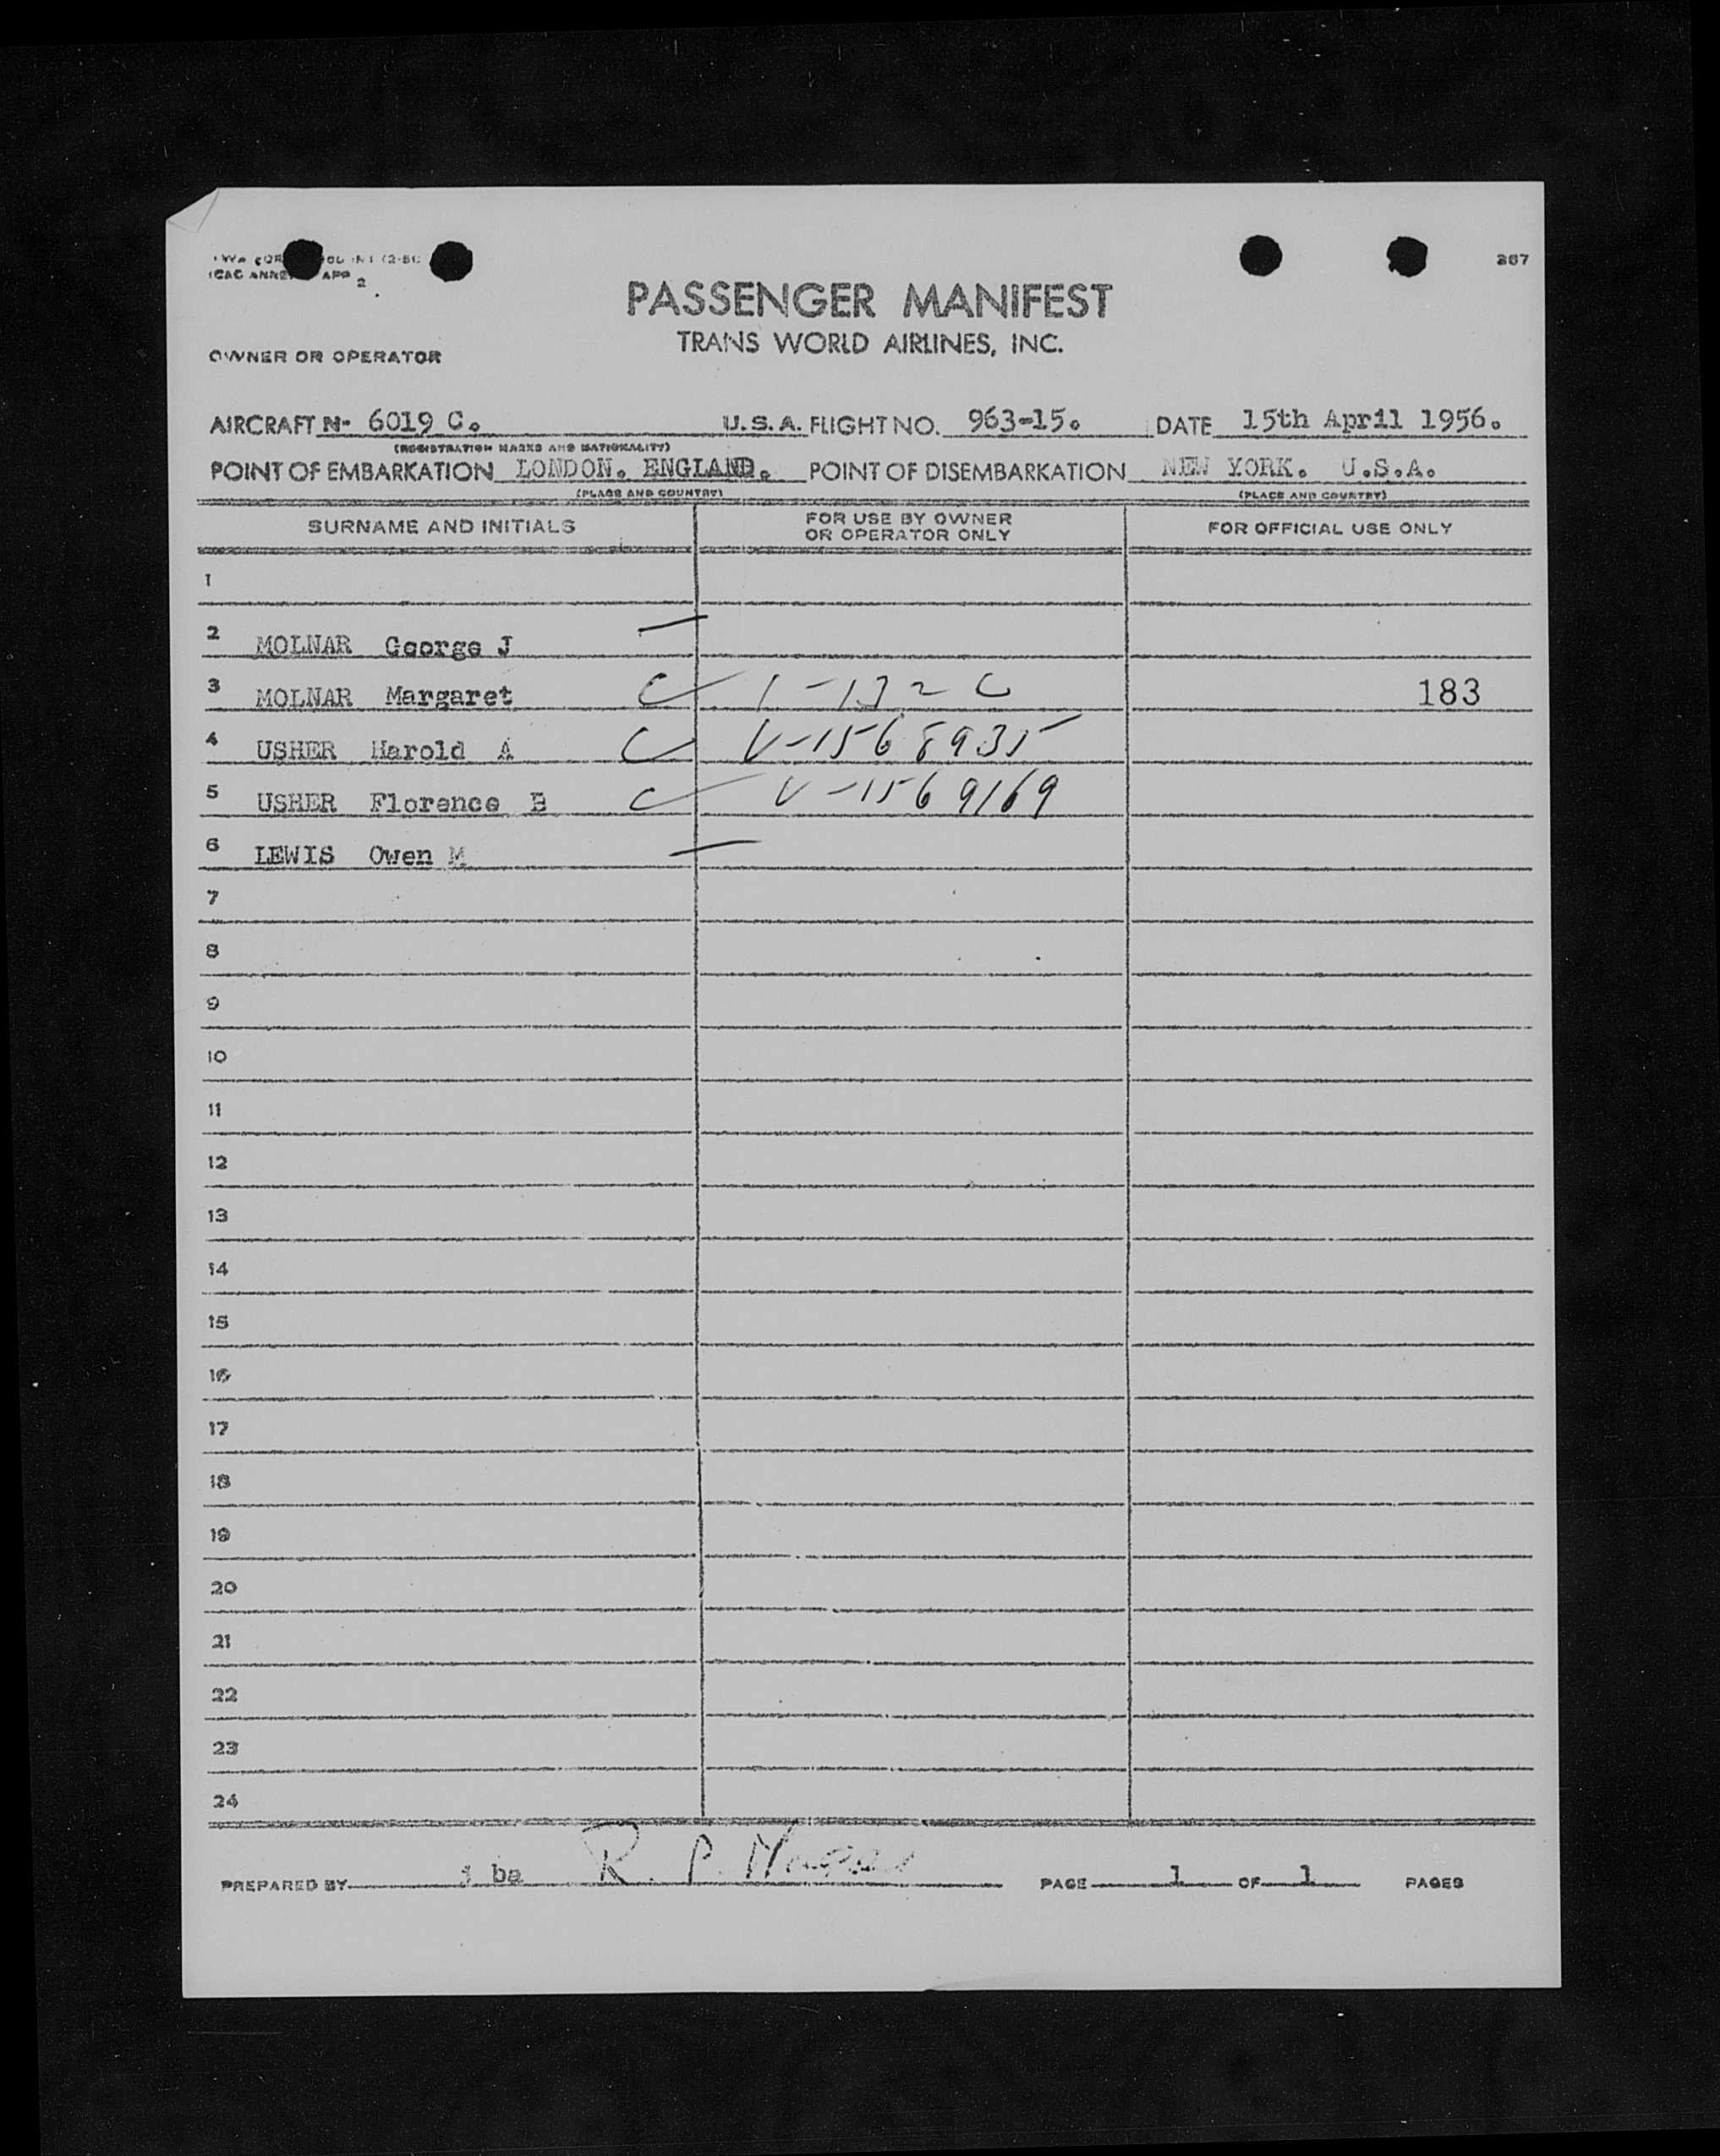 267
ICAO ANNEX APP 2
PASSENGER MANIFEST
TRANS WORLD AIRLINES, INC.
OWNER OR OPERATOR
AIRCRAFT N- 6019 C. U.S.A. FLIGHT NO. 963-15. DATE 15th April 1956.
(REGISTRATION MARKS AND NATIONALITY)
POINT OF EMBARKATION LONDON. ENGLAND. POINT OF DISEMBARKATION NEW YORK. U.S.A.
(PLACE AND COUNTRY) (PLACE AND COUNTRY)
SURNAME AND INITIALS FOR USE BY OWNER OR OPERATOR ONLY FOR OFFICIAL USE ONLY
1
2 MOLNAR George J
3 MOLNAR Margaret C 183
4 USHER Harold A C V-1568935
5 USHER Florence B C V-1569169
6 LEWIS Owen M
7
8
9
10
11
12
13
14
15
16
17
18
19
20
21
22
23
24
PREPARED BY ba R. P. PAGE 1 OF 1 PAGES